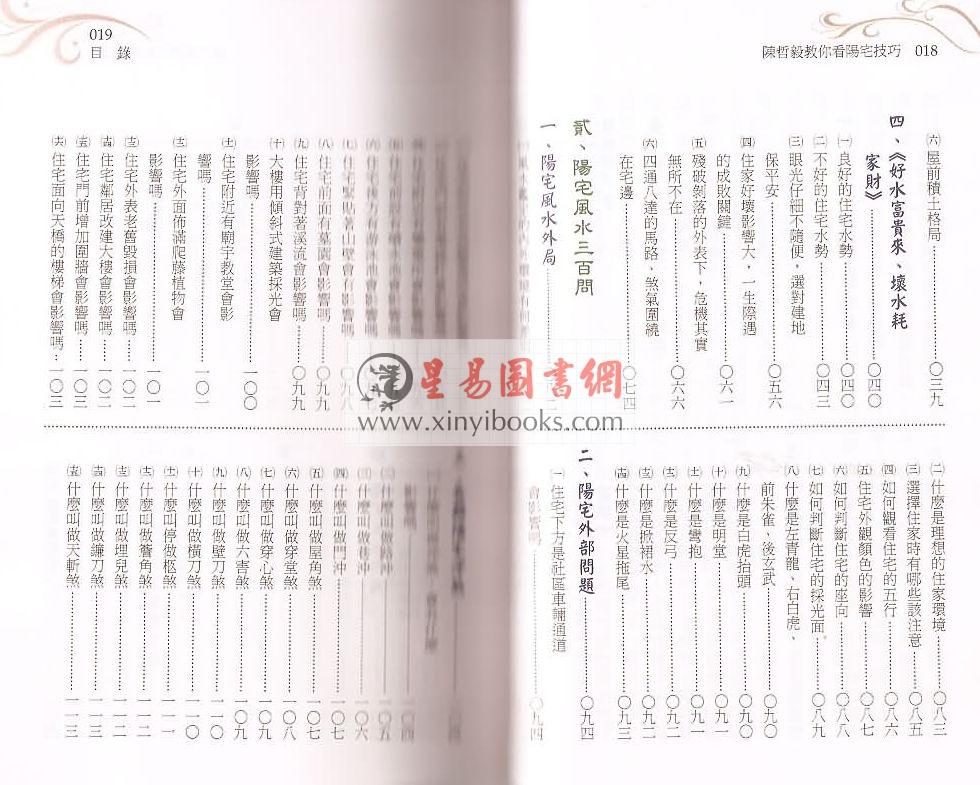 陳哲毅教你看陽宅技巧 018
㈥屋前積土格局……〇三九
四、《好水富貴來、壞水耗
家財》……〇四〇
㈠良好的住宅水勢……〇四〇
㈡不好的住宅水勢……〇四三
㈢眼光仔細不隨便，選對建地
保平安……〇五六
㈣住家好壞影響大，一生際遇
的成敗關鍵……〇六一
㈤殘破剝落的外表下，危機其實
無所不在……〇六六
㈥四通八達的馬路，煞氣圍繞
在宅邊……〇七四
貳、陽宅風水三百問
一、陽宅風水外局
㈡什麼是理想的住家環境……〇八三
㈢選擇住家時有哪些該注意……〇八五
㈣如何觀看住宅的五行……〇八六
㈤住宅外觀顏色的影響……〇八七
㈥如何判斷住宅的座向……〇八八
㈦如何判斷住宅的採光面……〇八九
㈧什麼是左青龍、右白虎、
前朱雀、後玄武……〇九〇
㈨什麼是白虎抬頭……〇九〇
㈩什麼是明堂……〇九一
㈪什麼是彎抱……〇九一
什麼是反弓……〇九二
什麼是掀裙水……〇九二
什麼是火星拖尾……〇九三
二、陽宅外部問題……〇九四
㈠住宅下方是社區車輛通道
會影響嗎……〇九四
019
目 錄
㈦住宅緊貼著山壁會有影響嗎……〇九八
㈧住宅前面有墓園會影響嗎……〇九九
㈨住宅背對著溪流會影響嗎……〇九九
㈩大樓用傾斜式建築採光會
影響嗎……一〇〇
住宅附近有廟宇教堂會影
響嗎……一〇一
住宅外面佈滿爬藤植物會
影響嗎……一〇一
住宅外表老舊毀損會影響嗎……一〇二
住宅鄰居改建大樓會影響嗎……一〇二
住宅門前增加圍牆會影響嗎……一〇三
住宅面向天橋的樓梯會影響嗎……一〇三
什麼叫做路沖……一〇五
㈢什麼叫做巷沖……一〇六
㈣什麼叫做門沖……一〇七
㈤什麼叫做屋角煞……一〇七
㈥什麼叫做穿堂煞……一〇八
㈦什麼叫做穿心煞……一〇九
㈧什麼叫做六害煞……一〇九
㈨什麼叫做壁刀煞……一一〇
㈩什麼叫做橫刀煞……一一〇
什麼叫停做柩煞……一一一
什麼叫做簷角煞……一一二
什麼叫做埋兒煞……一一二
什麼叫做鐮刀煞……一一三
什麼叫做天斬煞……一一三
星易圖書網
www.xinyibooks.com